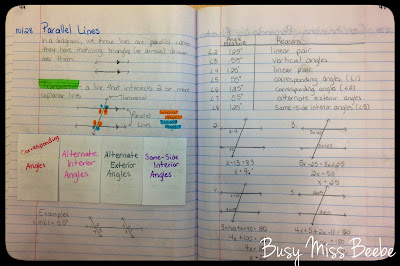 10/28 Parallel Lines
In a diagram, we know lines are parallel when
they have matching triangles or arrows drawn
on them.
a line that intersects 2 or more
coplanar lines
Transversal
Parallel
Lines
Corresponding
Angles
Alternate
Interior
Angles
Alternate
Exterior
Angles
Same-Side
Interior
Angles
Examples
Angle
Measure
Reason
∠2 125° linear pair
∠3 55° vertical angles
∠4 125° linear pair
∠5 55° corresponding angles (∠1)
∠6 125° corresponding angles
∠7 55° alternate exterior angles
∠8 125° same-side interior angles
2.
3.
x-13=83
x=96
5x-25=3x+25
2x=50
x=25
4.
5.
4x+100=180
=180
Busy Miss Beebe